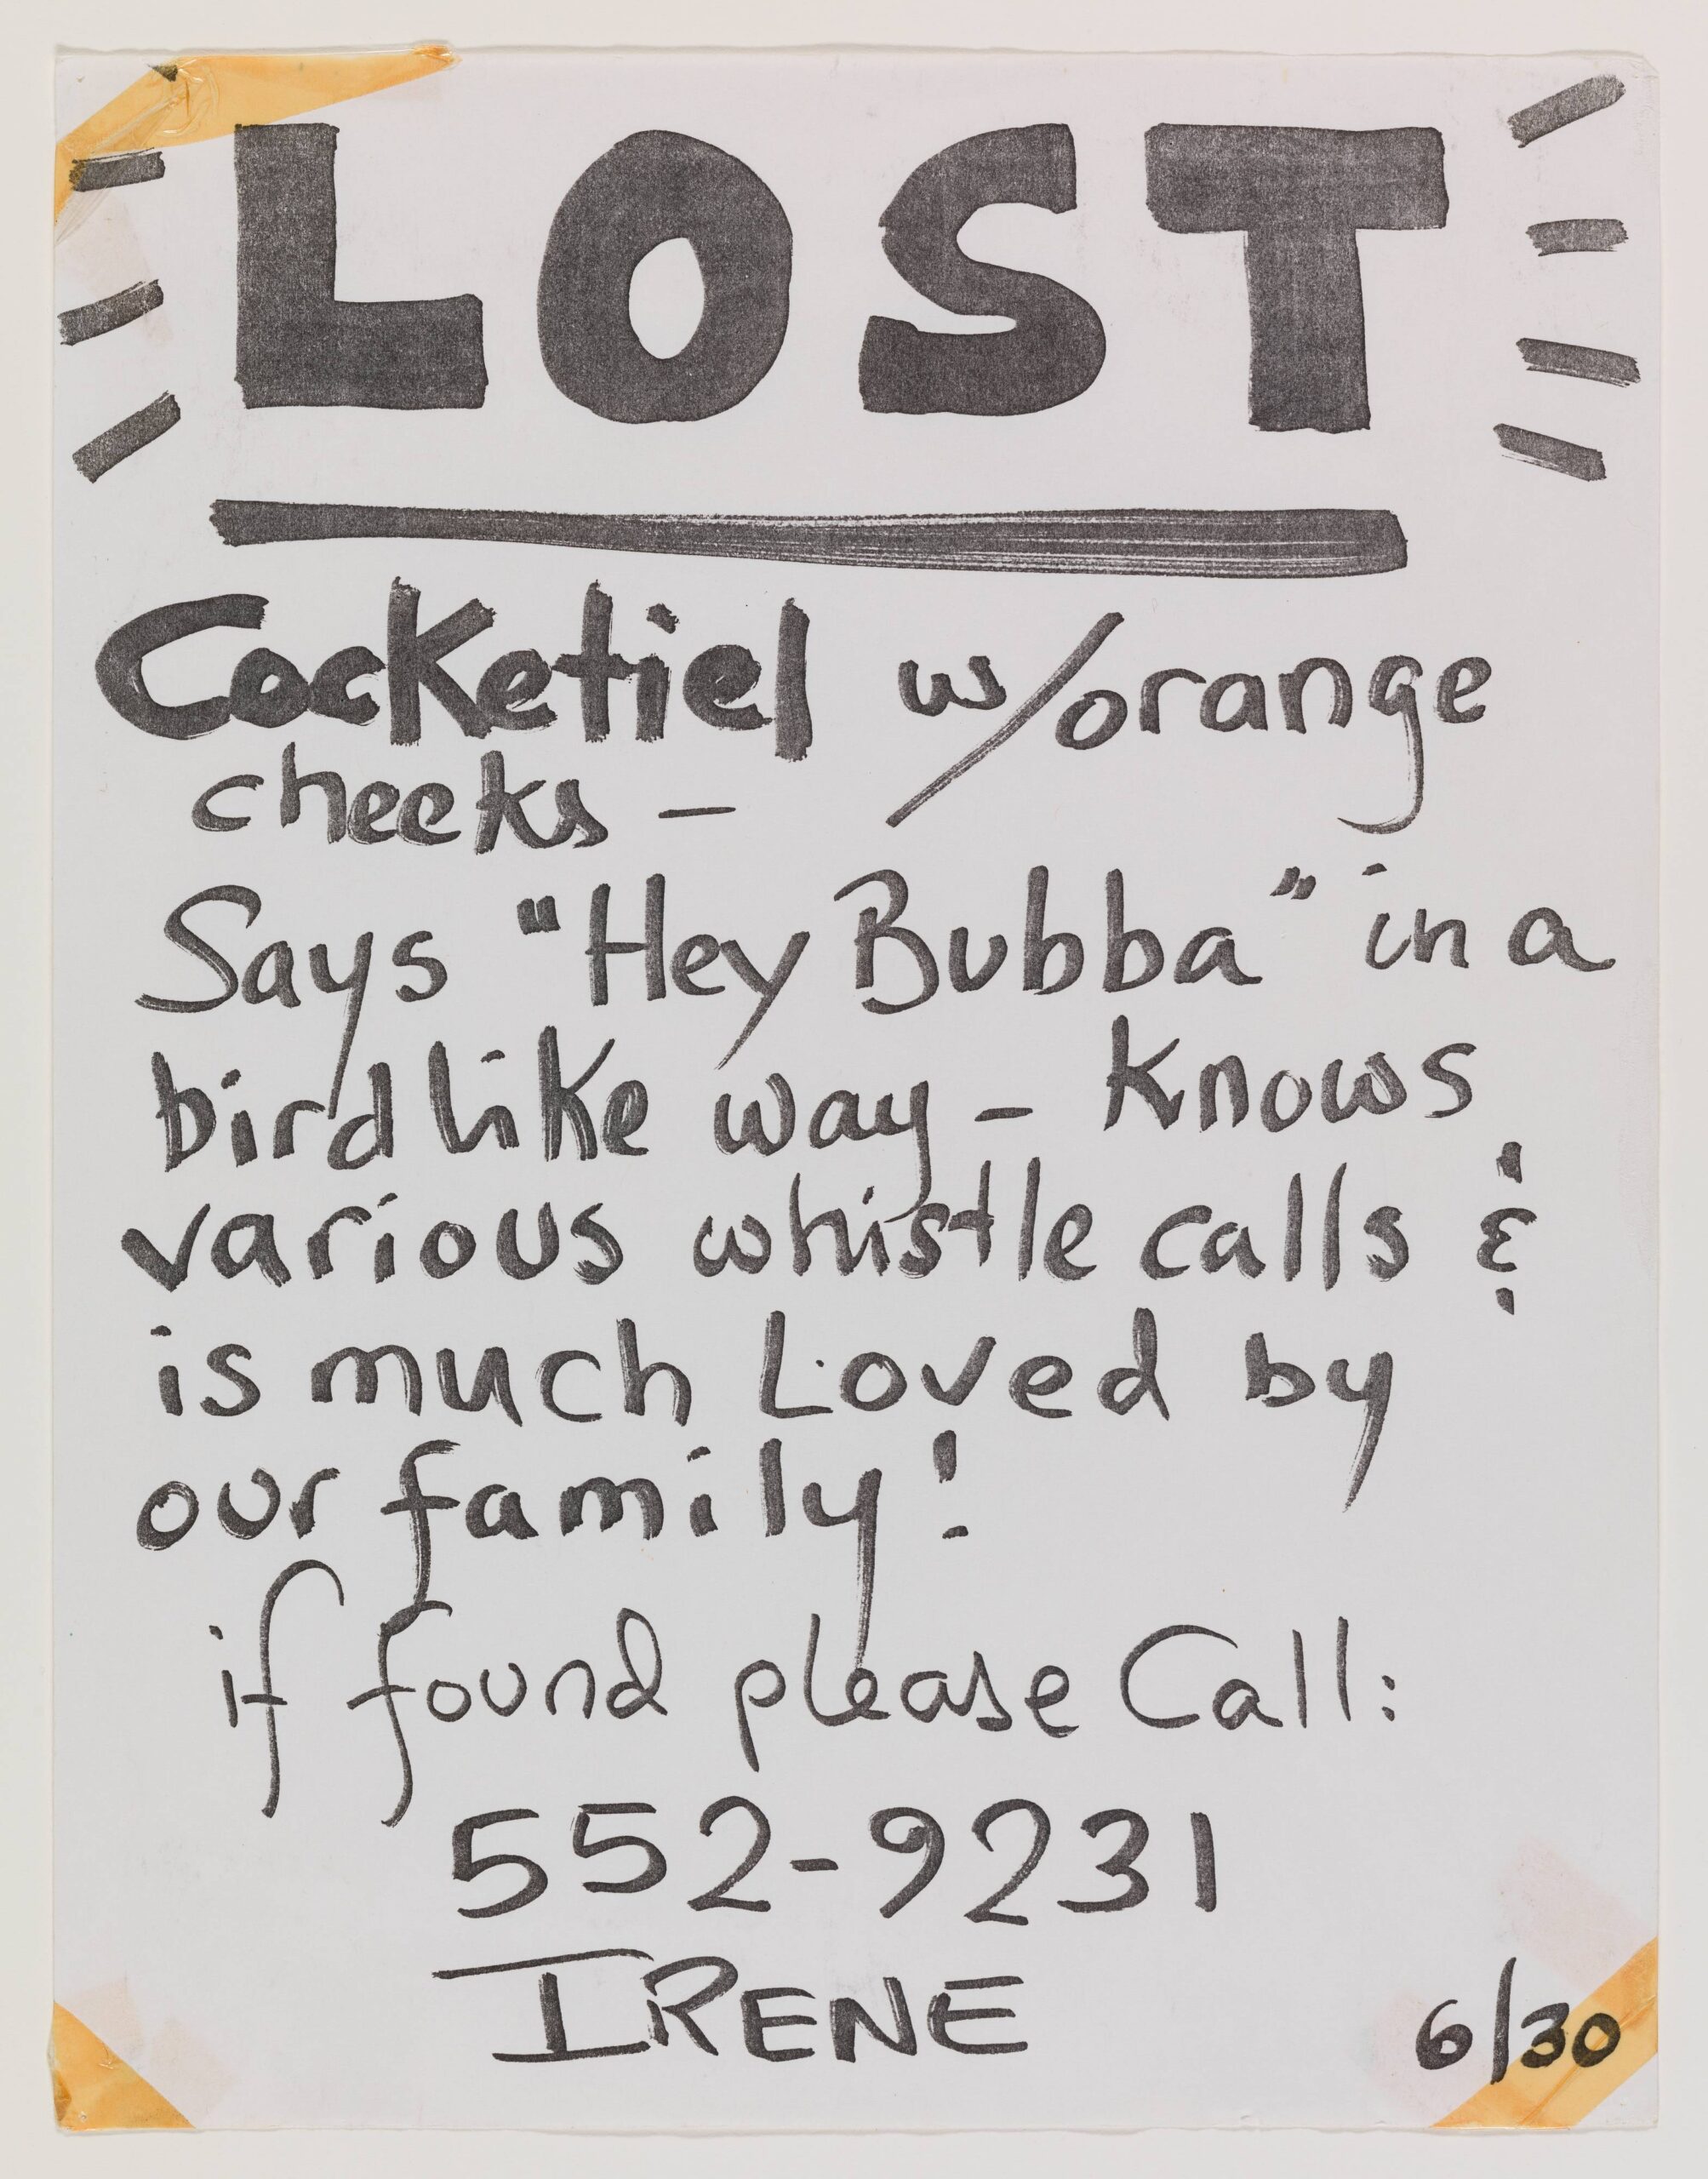 LOST
Cocketiel w/orange
cheeks -
Says "Hey Bubba" in a
birdlike way - knows
various whistle calls &
is much Loved by
our family!
if found please Call:
552-9231
IRENE
6/30